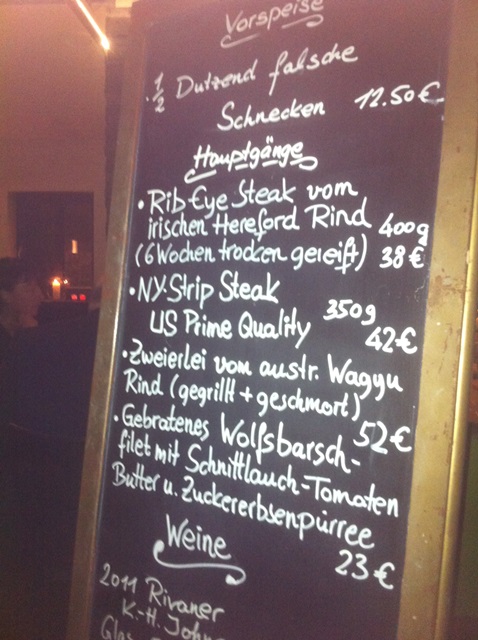 Vorspeise
· 1/2 Dutzend falsche
Schnecken 12.50€
Hauptgänge
· Rib Eye Steak vom
irischen Hereford Rind 400g
(6 Wochen trocken gereift) 38€
· NY-Strip Steak 350g
US Prime Quality 42€
· Zweierlei vom austr. Wagyu
Rind (gegrillt + geschmort) 52€
· Gebratenes Wolfsbarsch-
filet mit Schnittlauch-Tomaten
Butter u. Zuckererbsenpürree
23€
Weine
2011 Rivaner
K.-H. John
Glas